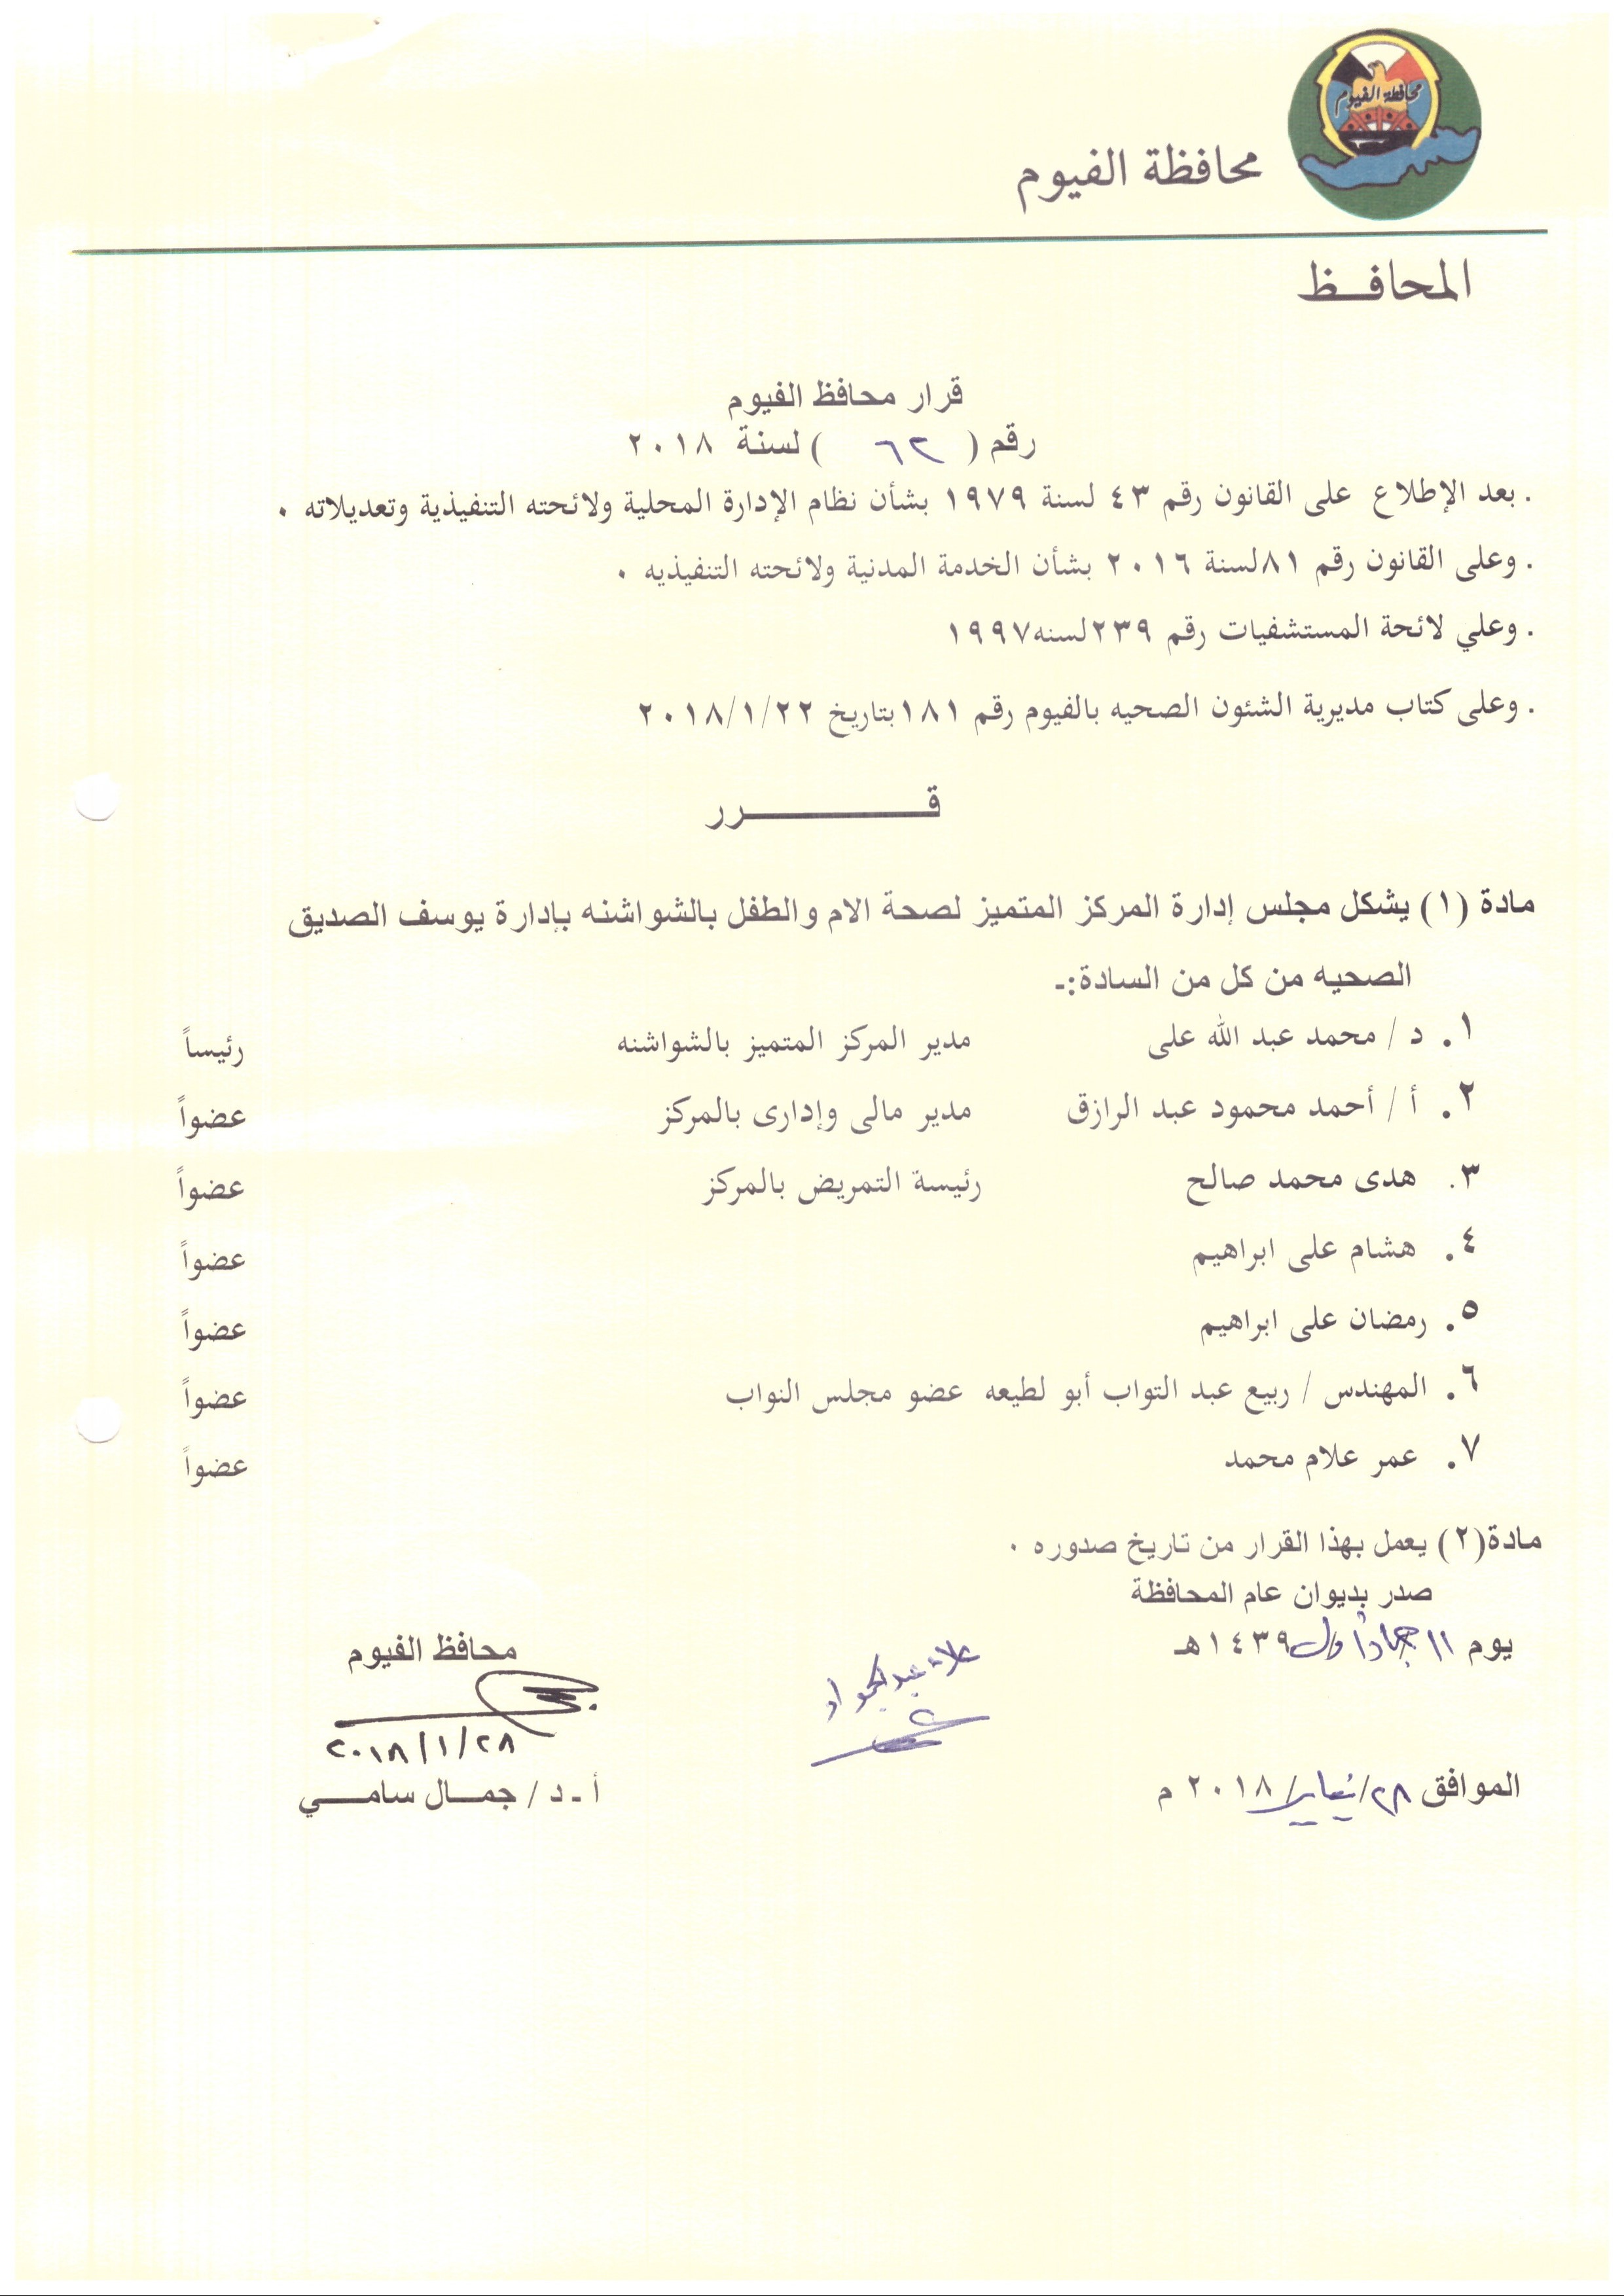 محافظة الفيوم
محافظة الفيوم
المحافـظ
قرار محافظ الفيوم
رقم ( ٦٢ ) لسنة ٢٠١٨
. بعد الإطلاع على القانون رقم ٤٣ لسنة ١٩٧٩ بشأن نظام الإدارة المحلية ولائحته التنفيذية وتعديلاته ٠
. وعلى القانون رقم ٨١لسنة ٢٠١٦ بشأن الخدمة المدنية ولائحته التنفيذيه ٠
. وعلي لائحة المستشفيات رقم ٢٣٩لسنه١٩٩٧
. وعلى كتاب مديرية الشئون الصحيه بالفيوم رقم ١٨١بتاريخ ٢٠١٨/١/٢٢
قـــــــــرر
مادة (١) يشكل مجلس إدارة المركز المتميز لصحة الام والطفل بالشواشنه بإدارة يوسف الصديق
الصحيه من كل من السادة:ـ
١. د / محمد عبد الله على مدير المركز المتميز بالشواشنه رئيساً
٢. أ / أحمد محمود عبد الرازق مدير مالى وإدارى بالمركز عضواً
٣. هدى محمد صالح رئيسة التمريض بالمركز عضواً
٤. هشام على ابراهيم عضواً
٥. رمضان على ابراهيم عضواً
٦. المهندس / ربيع عبد التواب أبو لطيعه عضو مجلس النواب عضواً
٧. عمر علام محمد عضواً
مادة(٢) يعمل بهذا القرار من تاريخ صدوره ٠
صدر بديوان عام المحافظة
يوم ١١ جمادأول ١٤٣٩هـ
الموافق ٢٨/يناير/٢٠١٨ م
علاء عبدالجواد
محافظ الفيوم
٢٠١٨/١/٢٨
أ ـ د / جمـــال سامـــي